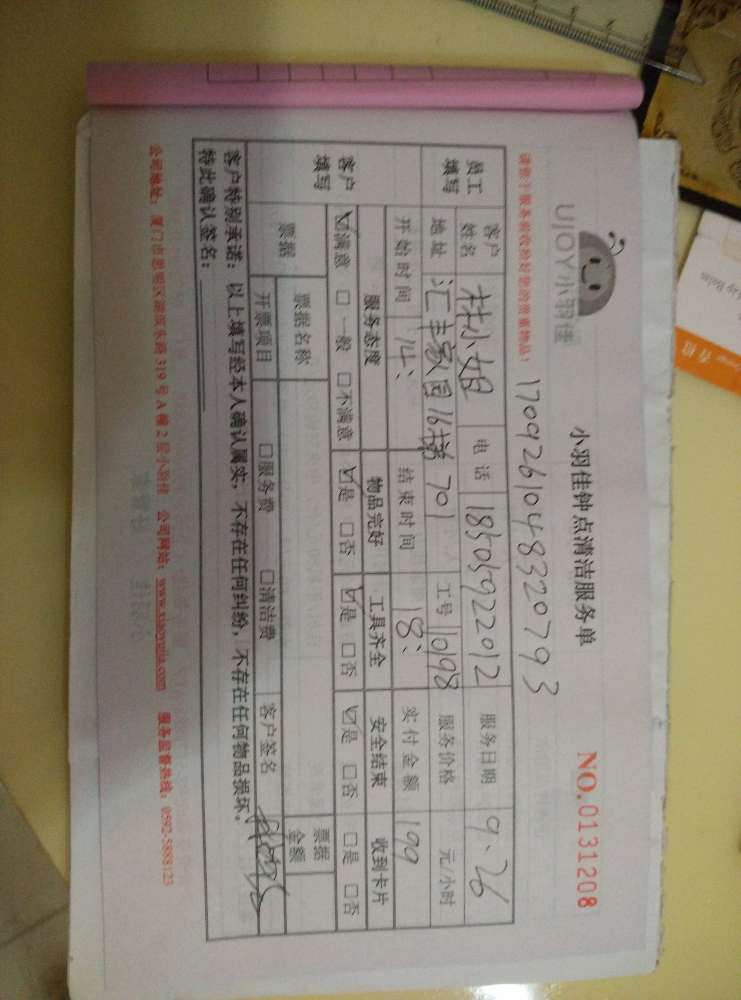 UJOY小羽佳
小羽佳钟点清洁服务单
NO.0131208
请您于服务前收拾好您的贵重物品！
170926104832079 3
员工填写
客户姓名 林小姐 电话 18505922012 服务日期 9.26
地址 汇丰家园16梯701 工号 1098 服务价格 元/小时
开始时间 14: 结束时间 18: 实付金额 199
客户填写
服务态度 物品完好 工具齐全 安全结束 收到卡片
☑满意 □一般 □不满意 ☑是 □否 ☑是 □否 ☑是 □否 □是 □否
票据 票据名称 票据金额
开票项目 □服务费 □清洁费 客户签名
客户特别承诺：以上填写经本人确认属实，不存在任何纠纷，不存在任何物品损坏。
特此确认签名：
公司地址：厦门市思明区湖滨东路319号A幢2层小羽佳 公司网站：www.xiaoyujia.com 服务监督热线：0592-5888123